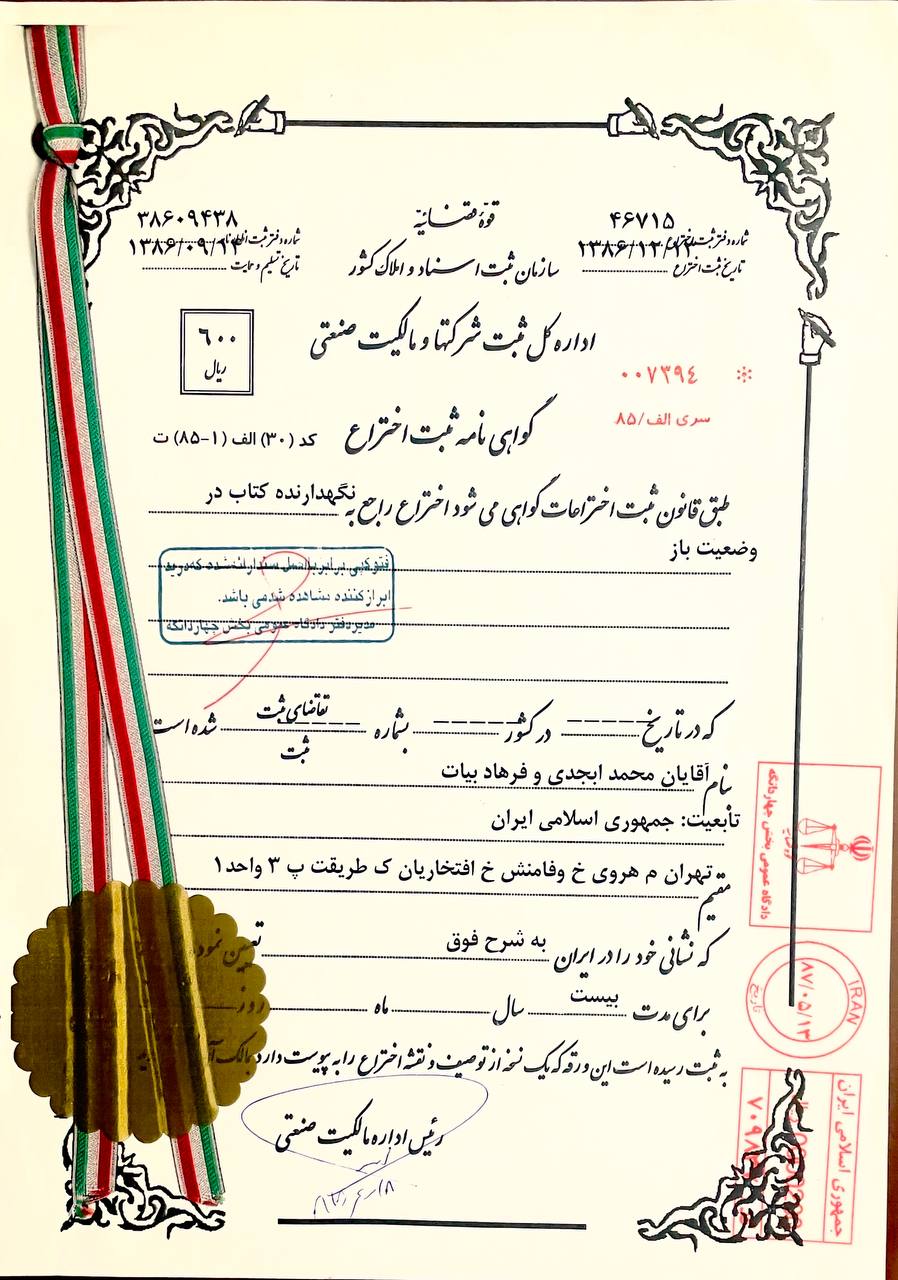 قوۀ قضائیّه
سازمان ثبت اسناد و املاک کشور
۴۶۷۱۵
شماره دفتر ثبت اختراع
۱۳۸۶/۱۲/۱۲
تاریخ ثبت اختراع
۳۸۶۰۹۴۳۸
شماره دفتر ثبت اظهارنامه
۱۳۸۶/۰۹/۱۲
تاریخ تسلیم و حمایت
اداره کل ثبت شرکتها و مالکیت صنعتی
۶۰۰
ریال
۰۰۷۳۹۴
سری الف/۸۵
گواهی نامه ثبت اختراع
کد (۳۰) الف (۱-۸۵) ت
طبق قانون ثبت اختراعات گواهی می شود اختراع راجع به نگهدارنده کتاب در
وضعیت باز
فتوکپی برابر با اصل سند ارائه شده که در ید
ابراز کننده مشاهده شد می باشد.
مدیر دفتر دادگاه عمومی بخش چهاردانگه
که در تاریخ ـ در کشور ـ بشماره تقاضای ثبت شده است
ثبت
بنام آقایان محمد ابجدی و فرهاد بیات
تابعیت: جمهوری اسلامی ایران
مقیم تهران م هروی خ وفامنش خ افتخاریان ک طریقت پ ۳ واحد۱
که نشانی خود را در ایران به شرح فوق تعیین نموده
برای مدت بیست سال ماه روز
به ثبت رسیده است این ورقه که یک نسخه از توصیف و نقشه اختراع را به پیوست دارد بمالک
رئیس اداره مالکیت صنعتی
دادگاه عمومی بخش چهاردانگه
IRAN
۸۷/۰۵/۱۳
تاریخ
جمهوری اسلامی ایران